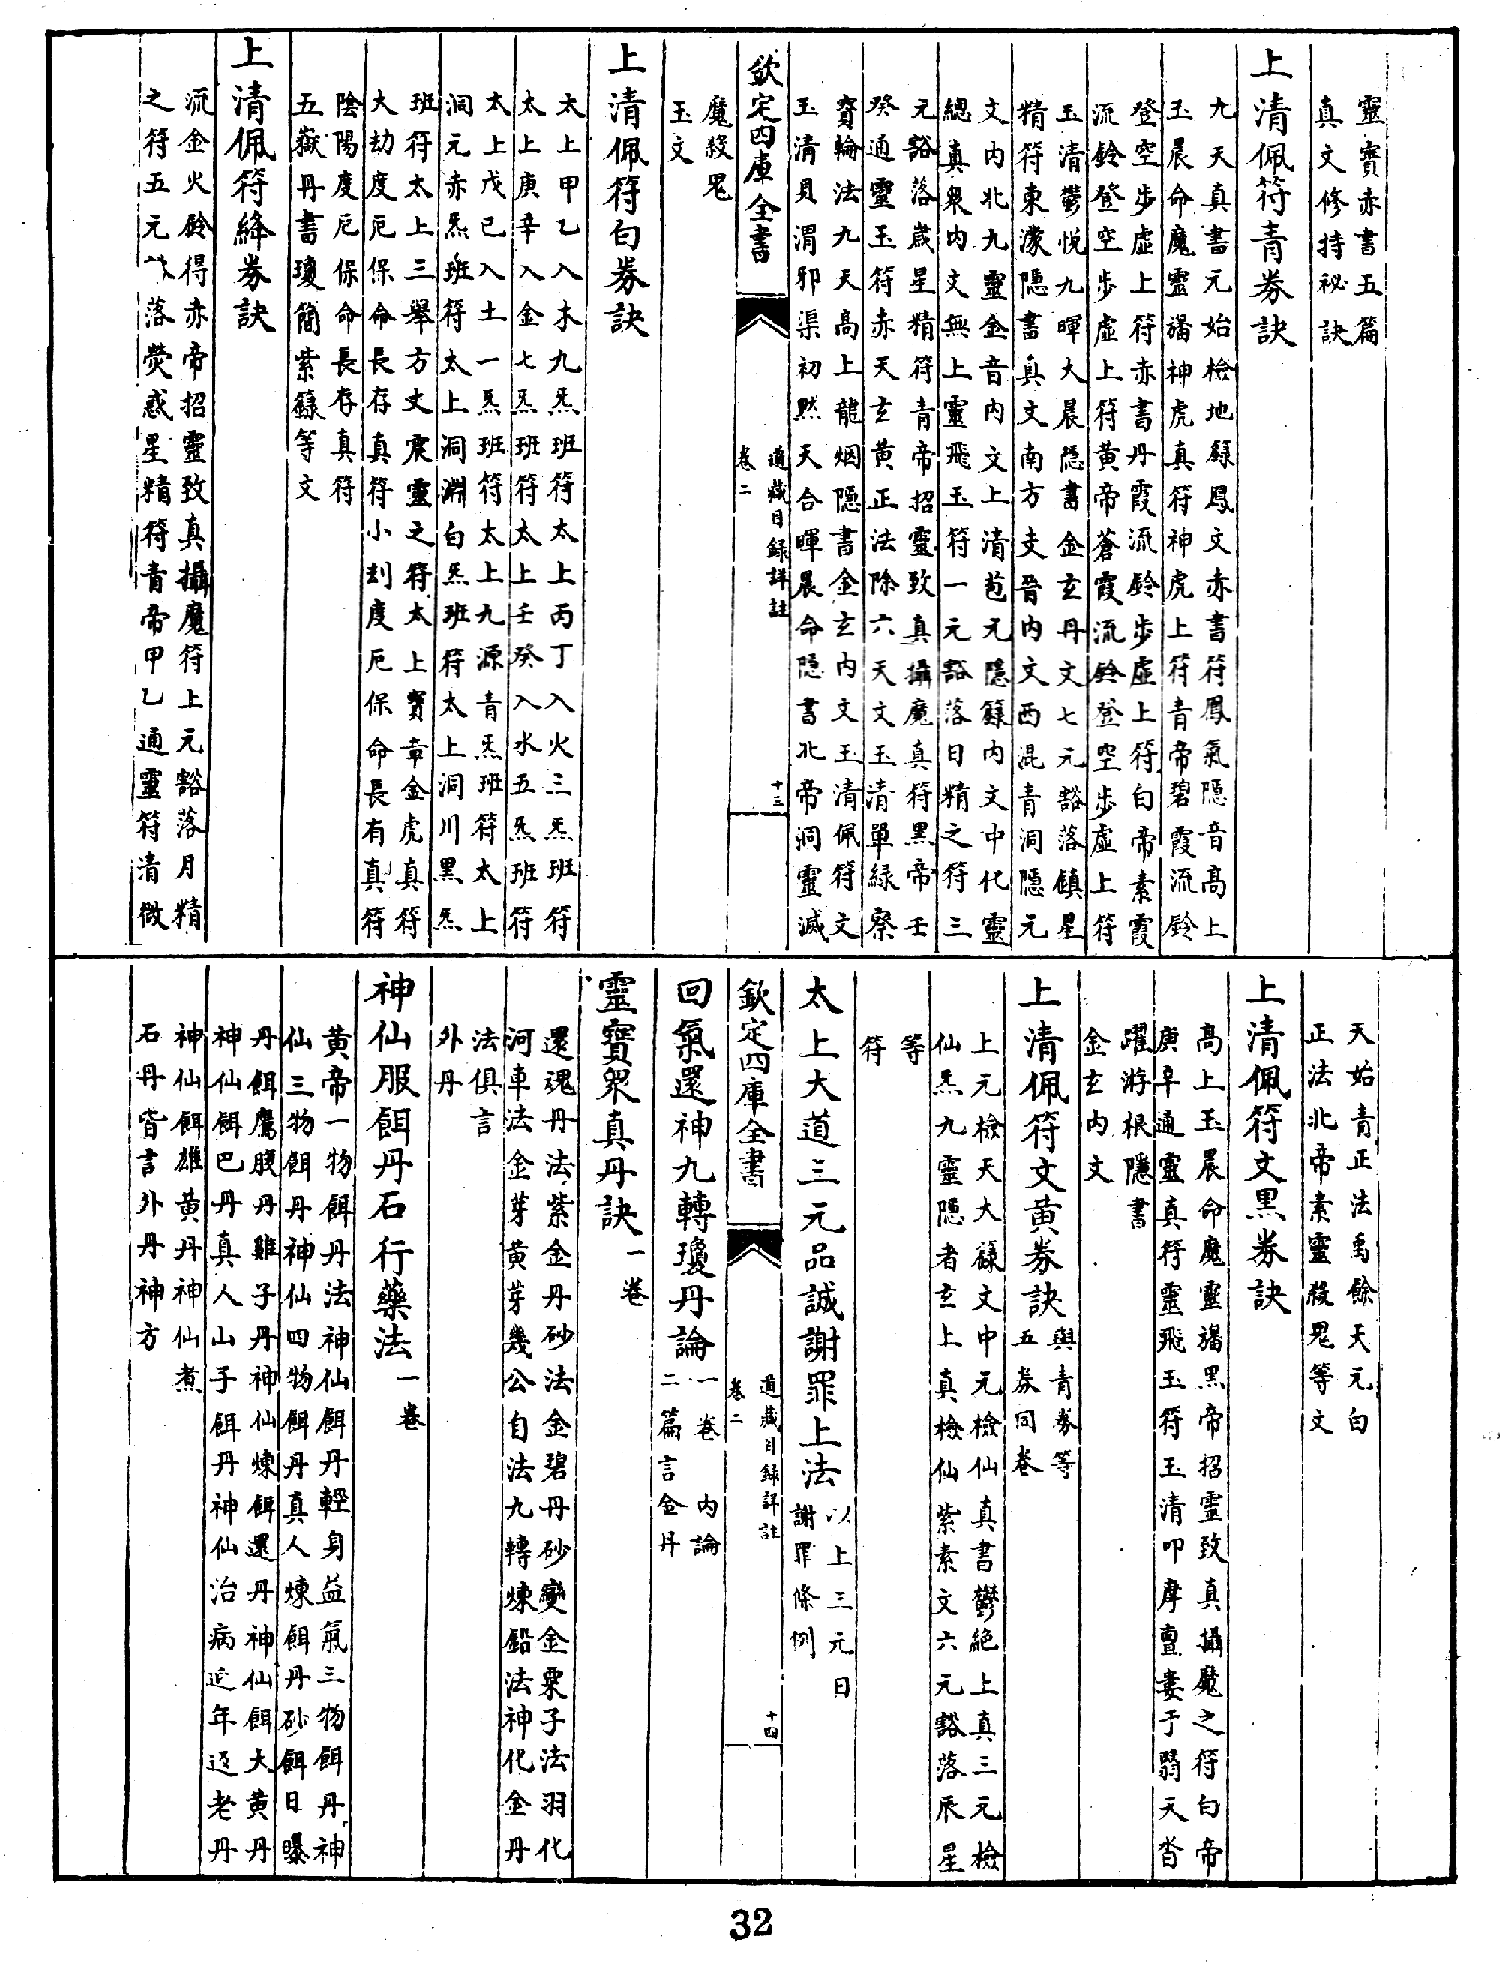 靈寶赤書五篇
真文修持祕訣
上清佩符青券訣
九天真書元始檢地籙鳳文赤書符鳳氣隠音髙上
玉晨命魔靈旛神虎真符神虎上符青帝碧霞流鈴
登空步虛上符赤書丹霞流鈴步虛上符白帝素霞
流鈴登空步虛上符黄帝蒼霞流鈴登空步虛上符
玉清鬱悅九暉大晨隠書金玄丹文七元豁落鎮星
精符東濛隠書真文南方支晉内文西混青洞隠元
文内北九靈金音内文上清苞元隠籙内文中化靈
總真衆内文無上靈飛玉符一元豁落日精之符三
元豁落嵗星精符青帝招靈致真攝魔真符黑帝壬
癸通靈玉符赤天玄黄正法除六天文玉清單緑察
寳輪法九天髙上龍烟隠書金玄内文玉清佩符文
玉清貝渭邪渠初黙天合暉晨命隠書北帝洞靈滅
欽定四庫全書
道藏目録詳註
卷二
十三
魔殺鬼
玉文
上清佩符白券訣
太上甲乙入木九炁班符太上丙丁入火三炁班符
太上庚辛入金七炁班符太上壬癸入水五炁班符
太上戊巳入土一炁班符太上九源青炁班符太上
洞元赤炁班符太上洞淵白炁班符太上洞川黑炁
班符太上三舉方文震靈之符太上寳章金虎真符
大劫度厄保命長存真符小刦度厄保命長有真符
陰陽度厄保命長存真符
五嶽丹書瓊簡紫籙等文
上清佩符絳券訣
流金火鈴得赤帝招靈致真攝魔符上元豁落月精
之符五元 落熒惑星精符青帝甲乙通靈符清微
天始青正法禹餘天元白
正法北帝素靈殺鬼等文
上清佩符文黑券訣
髙上玉晨命魔靈旛黑帝招靈致真攝魔之符白帝
庚辛通靈真符靈飛玉符玉清叩摩亶婁于翳天沓
躍游根隠書
金玄内文
上清佩符文黄券訣
與青券等
五券同卷
上元檢天大籙文中元檢仙真書鬱絶上真三元檢
仙炁九靈隠者玄上真檢仙紫素文六元豁落辰星
等
符
太上大道三元品誡謝罪上法
以上三元日
謝罪條例
欽定四庫全書
道藏目録詳註
卷二
十四
回氣還神九轉瓊丹論
一卷 内論
二篇言金丹
靈寳衆真丹訣
一卷
還魂丹法紫金丹砂法金碧丹砂變金粟子法羽化
河車法金芽黄芽幾公自法九轉煉鉛法神化金丹
法俱言
外丹
神仙服餌丹石行藥法
一卷
黄帝一物餌丹法神仙餌丹輕身益氣三物餌丹神
仙三物餌丹神仙四物餌丹真人煉餌丹砂餌日曝
丹餌鷹腹丹雞子丹神仙煉餌還丹神仙餌大黄丹
神仙餌巴丹真人山子餌丹神仙治病延年返老丹
神仙餌雄黄丹神仙煮
石丹皆言外丹神方
32